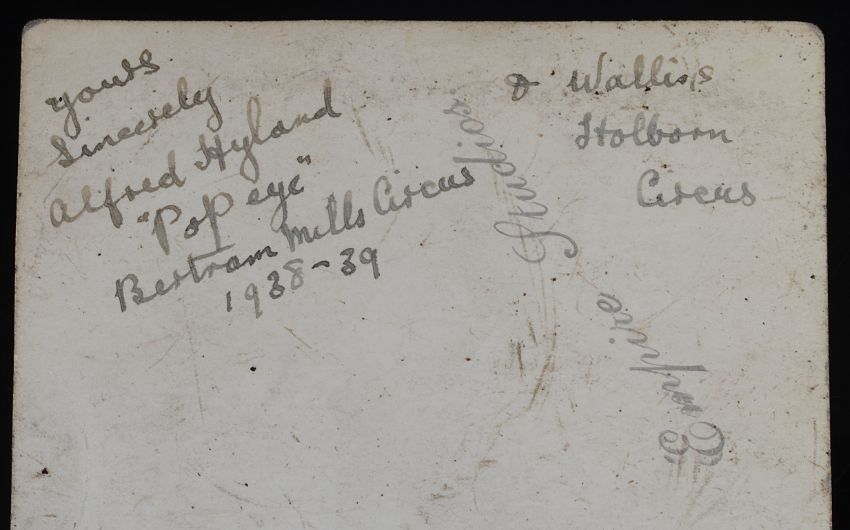 yours
Sincerely
Alfred Hyland
"Pop eye"
Bertram Mills Circus
1938-39
& Walliss
Holborn
Circus
Empire
Studios